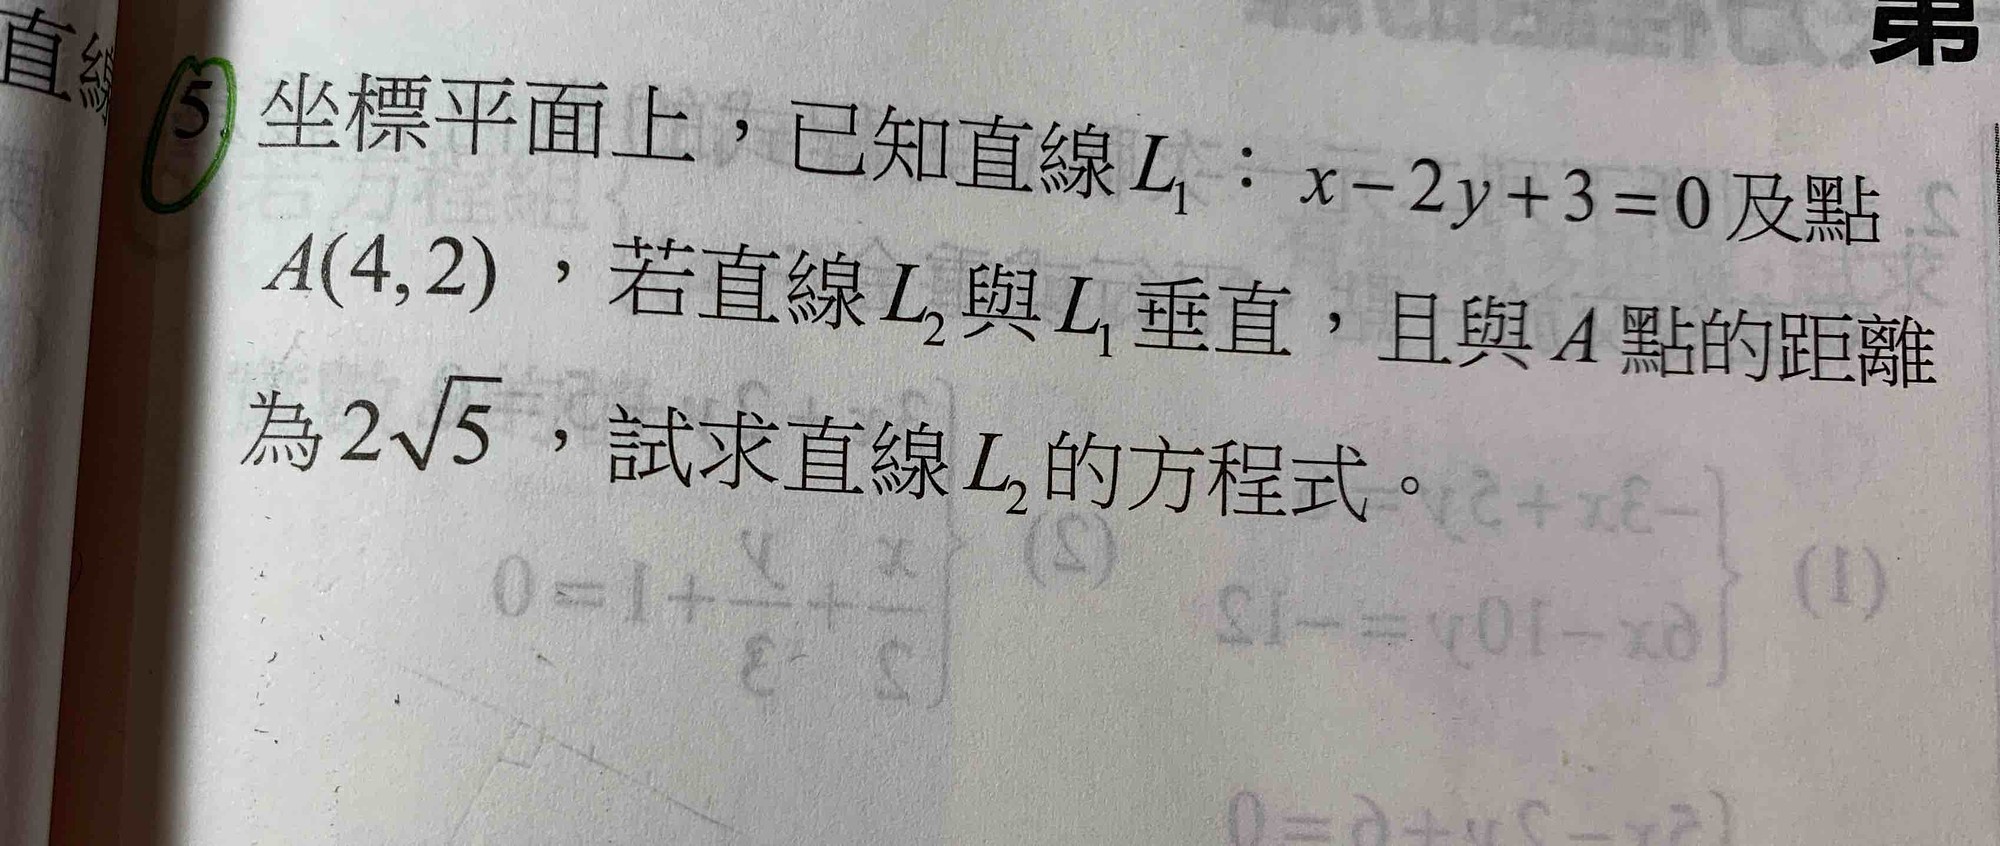 第
直線
5 坐標平面上，已知直線L₁：x－2y＋3＝0及點
A(4,2)，若直線L₂與L₁垂直，且與A點的距離
為2√5，試求直線L₂的方程式。